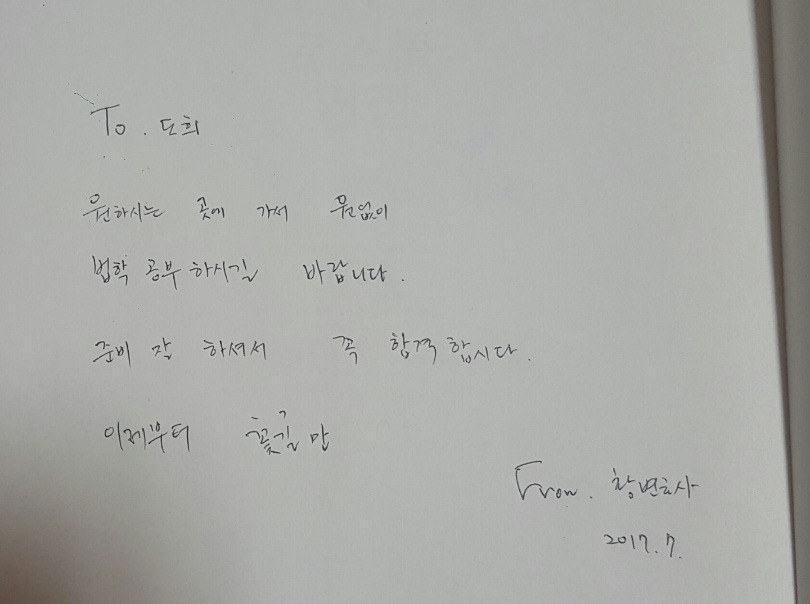 To. 도희
원하시는 곳에 가서 원없이
법학 공부 하시길 바랍니다.
준비 잘 하셔서 꼭 합격합시다.
이제부터 꽃길만
From. 창변호사
2017. 7.